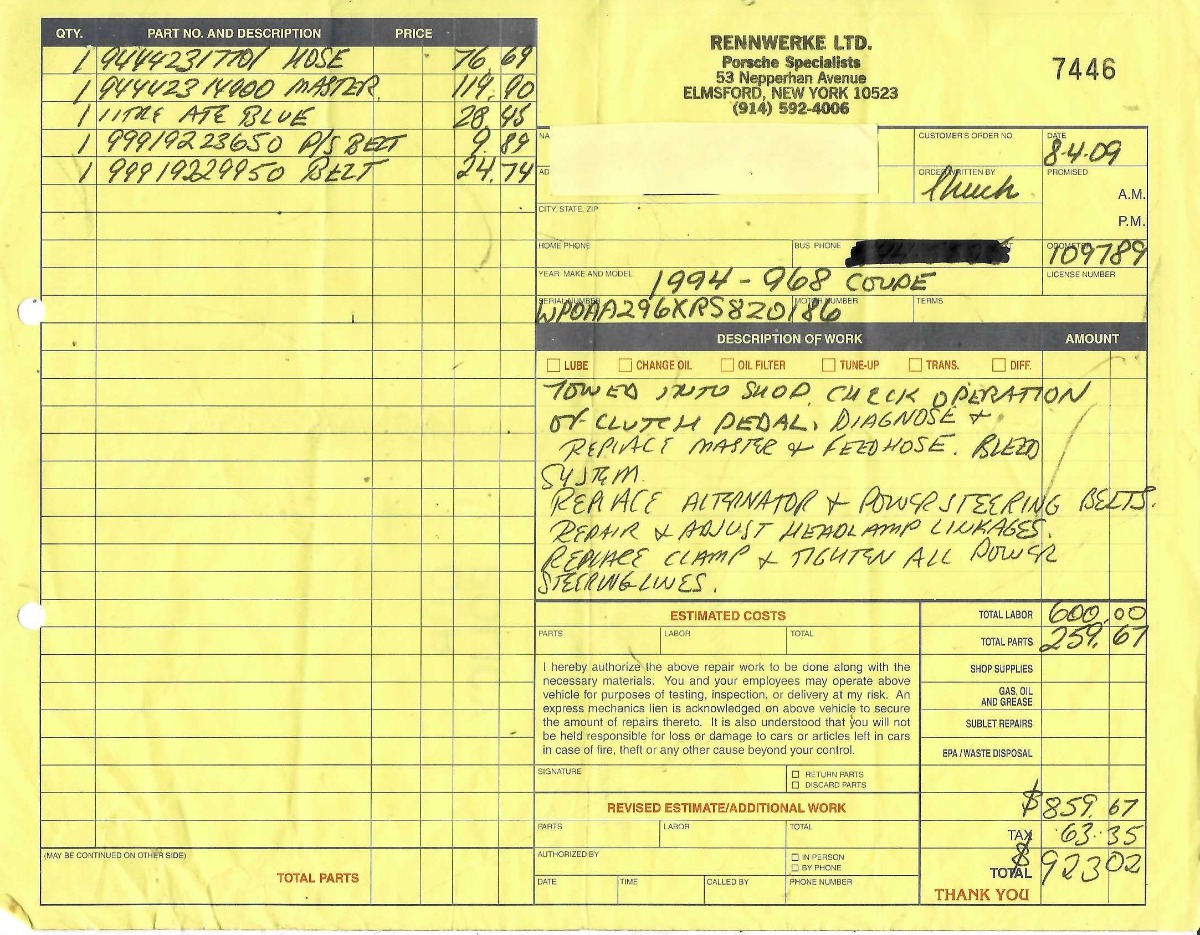 QTY. PART NO. AND DESCRIPTION PRICE
1 94442317701 HOSE 76.69
1 94442314900 MASTER 119.90
1 1 LITRE ATE BLUE 28.45
1 99919223650 P/S BELT 9.89
1 99919229950 BELT 24.74
(MAY BE CONTINUED ON OTHER SIDE)
TOTAL PARTS
RENNWERKE LTD.
Porsche Specialists
53 Nepperhan Avenue
ELMSFORD, NEW YORK 10523
(914) 592-4006
7446
NA
CUSTOMER'S ORDER NO.
DATE
8-4-09
AD
ORDER WRITTEN BY
Chuck
PROMISED
A.M.
P.M.
CITY, STATE, ZIP
HOME PHONE
BUS. PHONE
ODOMETER
109789
YEAR, MAKE AND MODEL
1994 - 968 COUPE
LICENSE NUMBER
SERIAL NUMBER
WP0AA296XRS820186
MOTOR NUMBER
TERMS
DESCRIPTION OF WORK AMOUNT
LUBE CHANGE OIL OIL FILTER TUNE-UP TRANS. DIFF.
TOWED INTO SHOP. CHECK OPERATION
OF CLUTCH PEDAL. DIAGNOSE &
REPLACE MASTER & FEEDHOSE. BLEED
SYSTEM.
REPLACE ALTERNATOR & POWER STEERING BELTS.
REPAIR & ADJUST HEADLAMP LINKAGES.
REPLACE CLAMP & TIGHTEN ALL POWER
STEERING LINES.
ESTIMATED COSTS
PARTS LABOR TOTAL
I hereby authorize the above repair work to be done along with the
necessary materials. You and your employees may operate above
vehicle for purposes of testing, inspection, or delivery at my risk. An
express mechanics lien is acknowledged on above vehicle to secure
the amount of repairs thereto. It is also understood that you will not
be held responsible for loss or damage to cars or articles left in cars
in case of fire, theft or any other cause beyond your control.
SIGNATURE
RETURN PARTS
DISCARD PARTS
REVISED ESTIMATE/ADDITIONAL WORK
PARTS LABOR TOTAL
AUTHORIZED BY
IN PERSON
BY PHONE
DATE TIME CALLED BY PHONE NUMBER
TOTAL LABOR 600.00
TOTAL PARTS 259.67
SHOP SUPPLIES
GAS, OIL
AND GREASE
SUBLET REPAIRS
EPA / WASTE DISPOSAL
$859.67
TAX 63.35
TOTAL $92302
THANK YOU